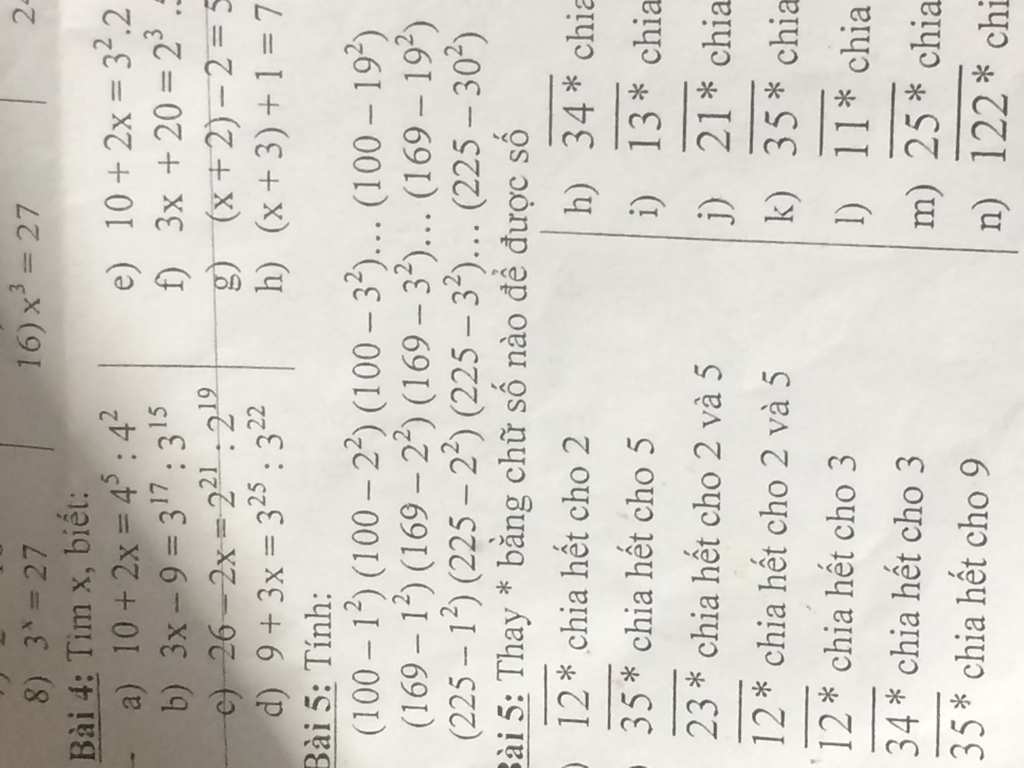 8) 3ˣ = 27
16) x³ = 27
24
Bài 4: Tìm x, biết:
a) 10 + 2x = 4⁵ : 4²
b) 3x – 9 = 3¹⁷ : 3¹⁵
c) 26 – 2x = 2²¹ : 2¹⁹
d) 9 + 3x = 3²⁵ : 3²²
e) 10 + 2x = 3².2
f) 3x + 20 = 2³.
g) (x + 2) – 2 = 5
h) (x + 3) + 1 = 7
Bài 5: Tính:
(100 – 1²) (100 – 2²) (100 – 3²)… (100 – 19²)
(169 – 1²) (169 – 2²) (169 – 3²)… (169 – 19²)
(225 – 1²) (225 – 2²) (225 – 3²)… (225 – 30²)
Bài 5: Thay * bằng chữ số nào để được số
12* chia hết cho 2
35* chia hết cho 5
23* chia hết cho 2 và 5
12* chia hết cho 2 và 5
12* chia hết cho 3
34* chia hết cho 3
35* chia hết cho 9
h) 34* chia
i) 13* chia
j) 21* chia
k) 35* chia
l) 11* chia
m) 25* chia
n) 122* chi